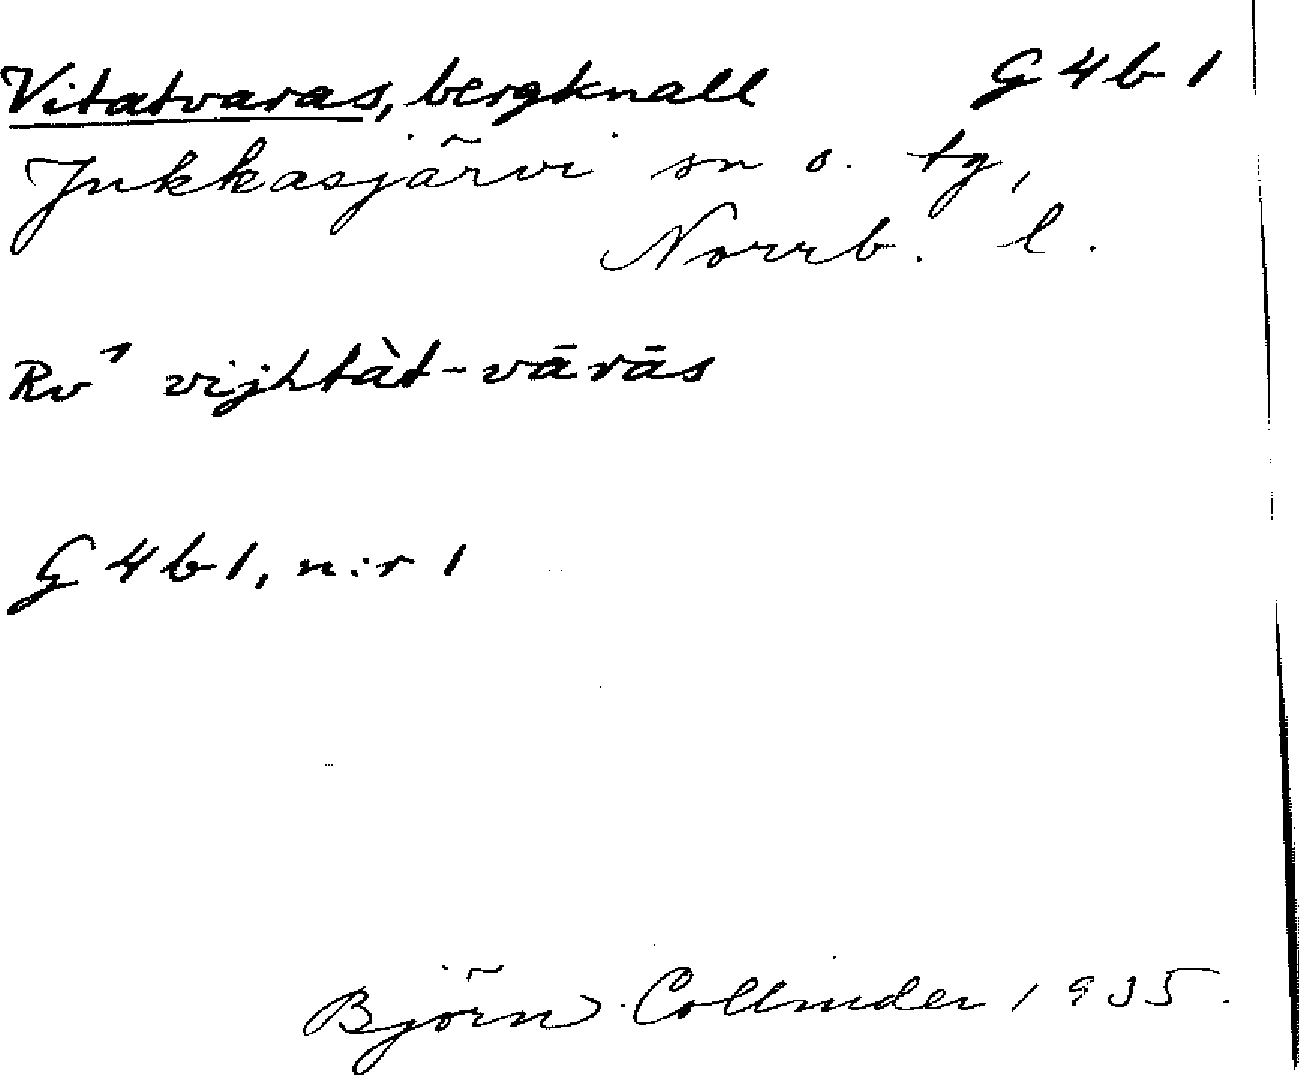 Vitatvaras, bergknall G 4 b 1
Jukkasjärvi sn o. tg,
Norrb. l.
Rv¹ vijhtàt-vārās
G 4 b 1, n:r 1
Björn Collinder 1935.